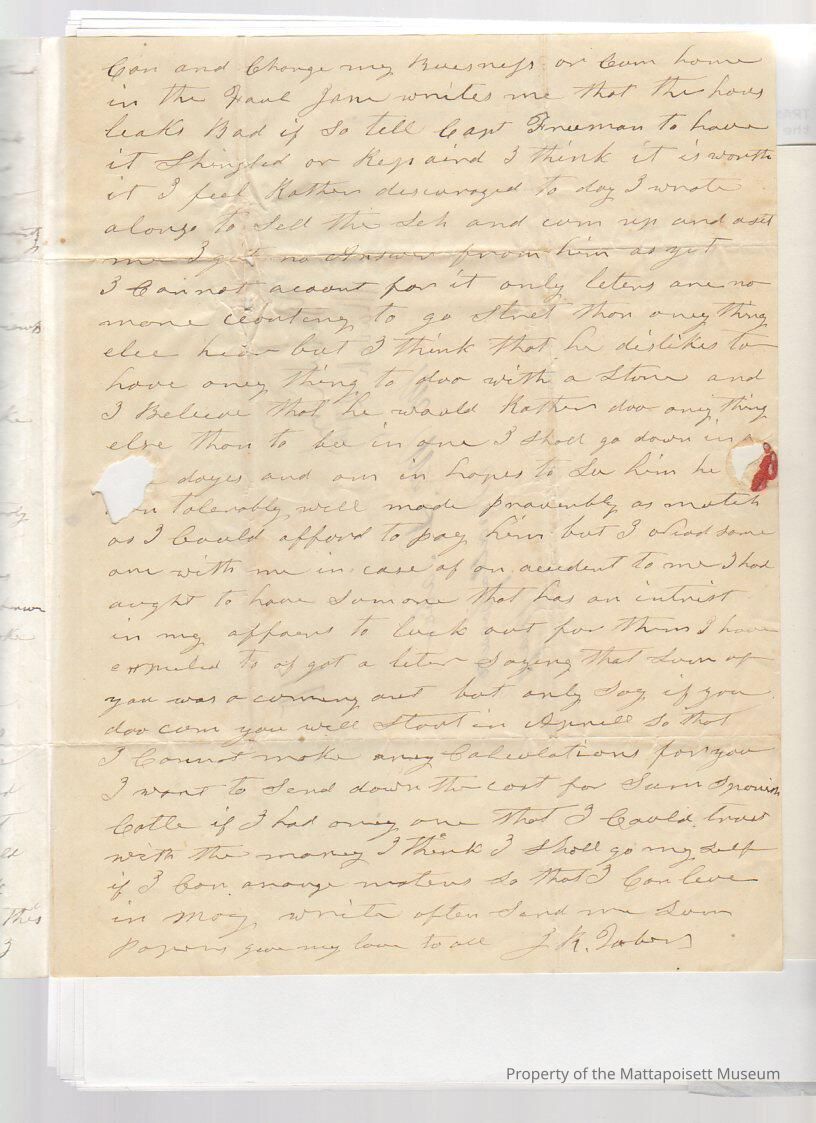 Can and Change my Buesness or Cum home
in the Faul Jane writes me that the hous
leaks Bad if So tell Capt Freeman to have
it Shingled or Repaird I think it is worth
it I feel Rather discouraged to day I wrote
alonzo to Sell the Sch and cum up and asist
me I got no Answer from him as yet
I Cannot acount for it only leters are no
more to go Stret than oney thing
else hear but I think that he dislikes to
have oney thing to doo with a Store and
I Beleeve that he would Rather doo oney thing
else than to bee in one I Shall go down in a
dayes and am in hopes to See him he
tolerably well made proverbly as mutch
as I Could afford to pay him but I want some
one with me in case of an acident to me I had
aught to have Somone that has an intrist
in my affaers to luck out for them I have
expected to of got a leter Saying that Sum of
you was a coming out but only Say if you
doo cum you will Start in Aprill So that
I Cannot make oney Calculations for you
I want to Send down the cost for Sum Spanish
Catle if I had oney one that I Could trust
with the money I think I Shall go my self
if I Can arange maters So that I Can leve
in May write often Send me Sum
Papers give my love to all J. K. Taber
This
Property of the Mattapoisett Museum